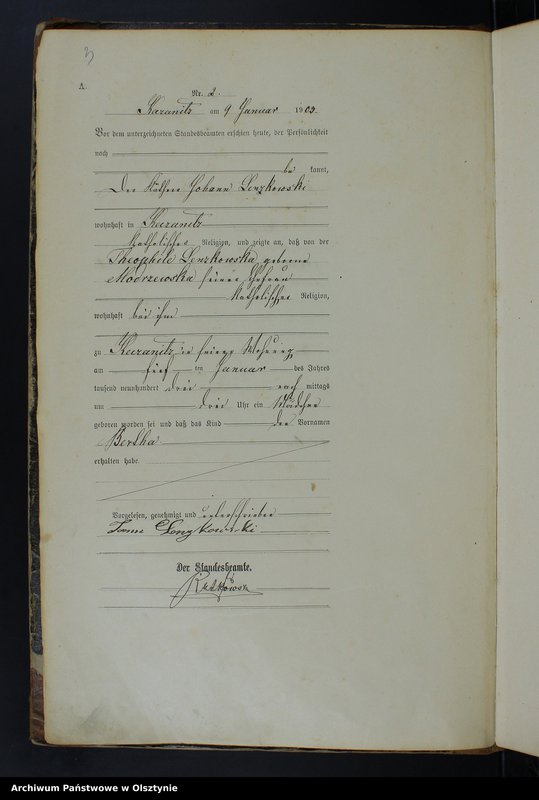 3
A.
Nr. 2.
Kazanitz am 9 Januar 1903.
Vor dem unterzeichneten Standesbeamten erschien heute, der Persönlichkeit
nach
be kannt,
Der Käthner Johann Lenzkowski
wohnhaft in Kazanitz
katholischer Religion, und zeigte an, daß von der
Theophile Lenzkowska geborne
Modrzewska seiner Ehefrau
katholischer Religion,
wohnhaft bei ihm
zu Kazanitz in seiner Wohnung
am fünf ten Januar des Jahres
tausend neunhundert drei nach mittags
um drei Uhr ein Mädchen
geboren worden sei und daß das Kind den Vornamen
Bertha
erhalten habe.
Vorgelesen, genehmigt und unterschrieben
Lenzkowski
Der Standesbeamte.
Archiwum Państwowe w Olsztynie